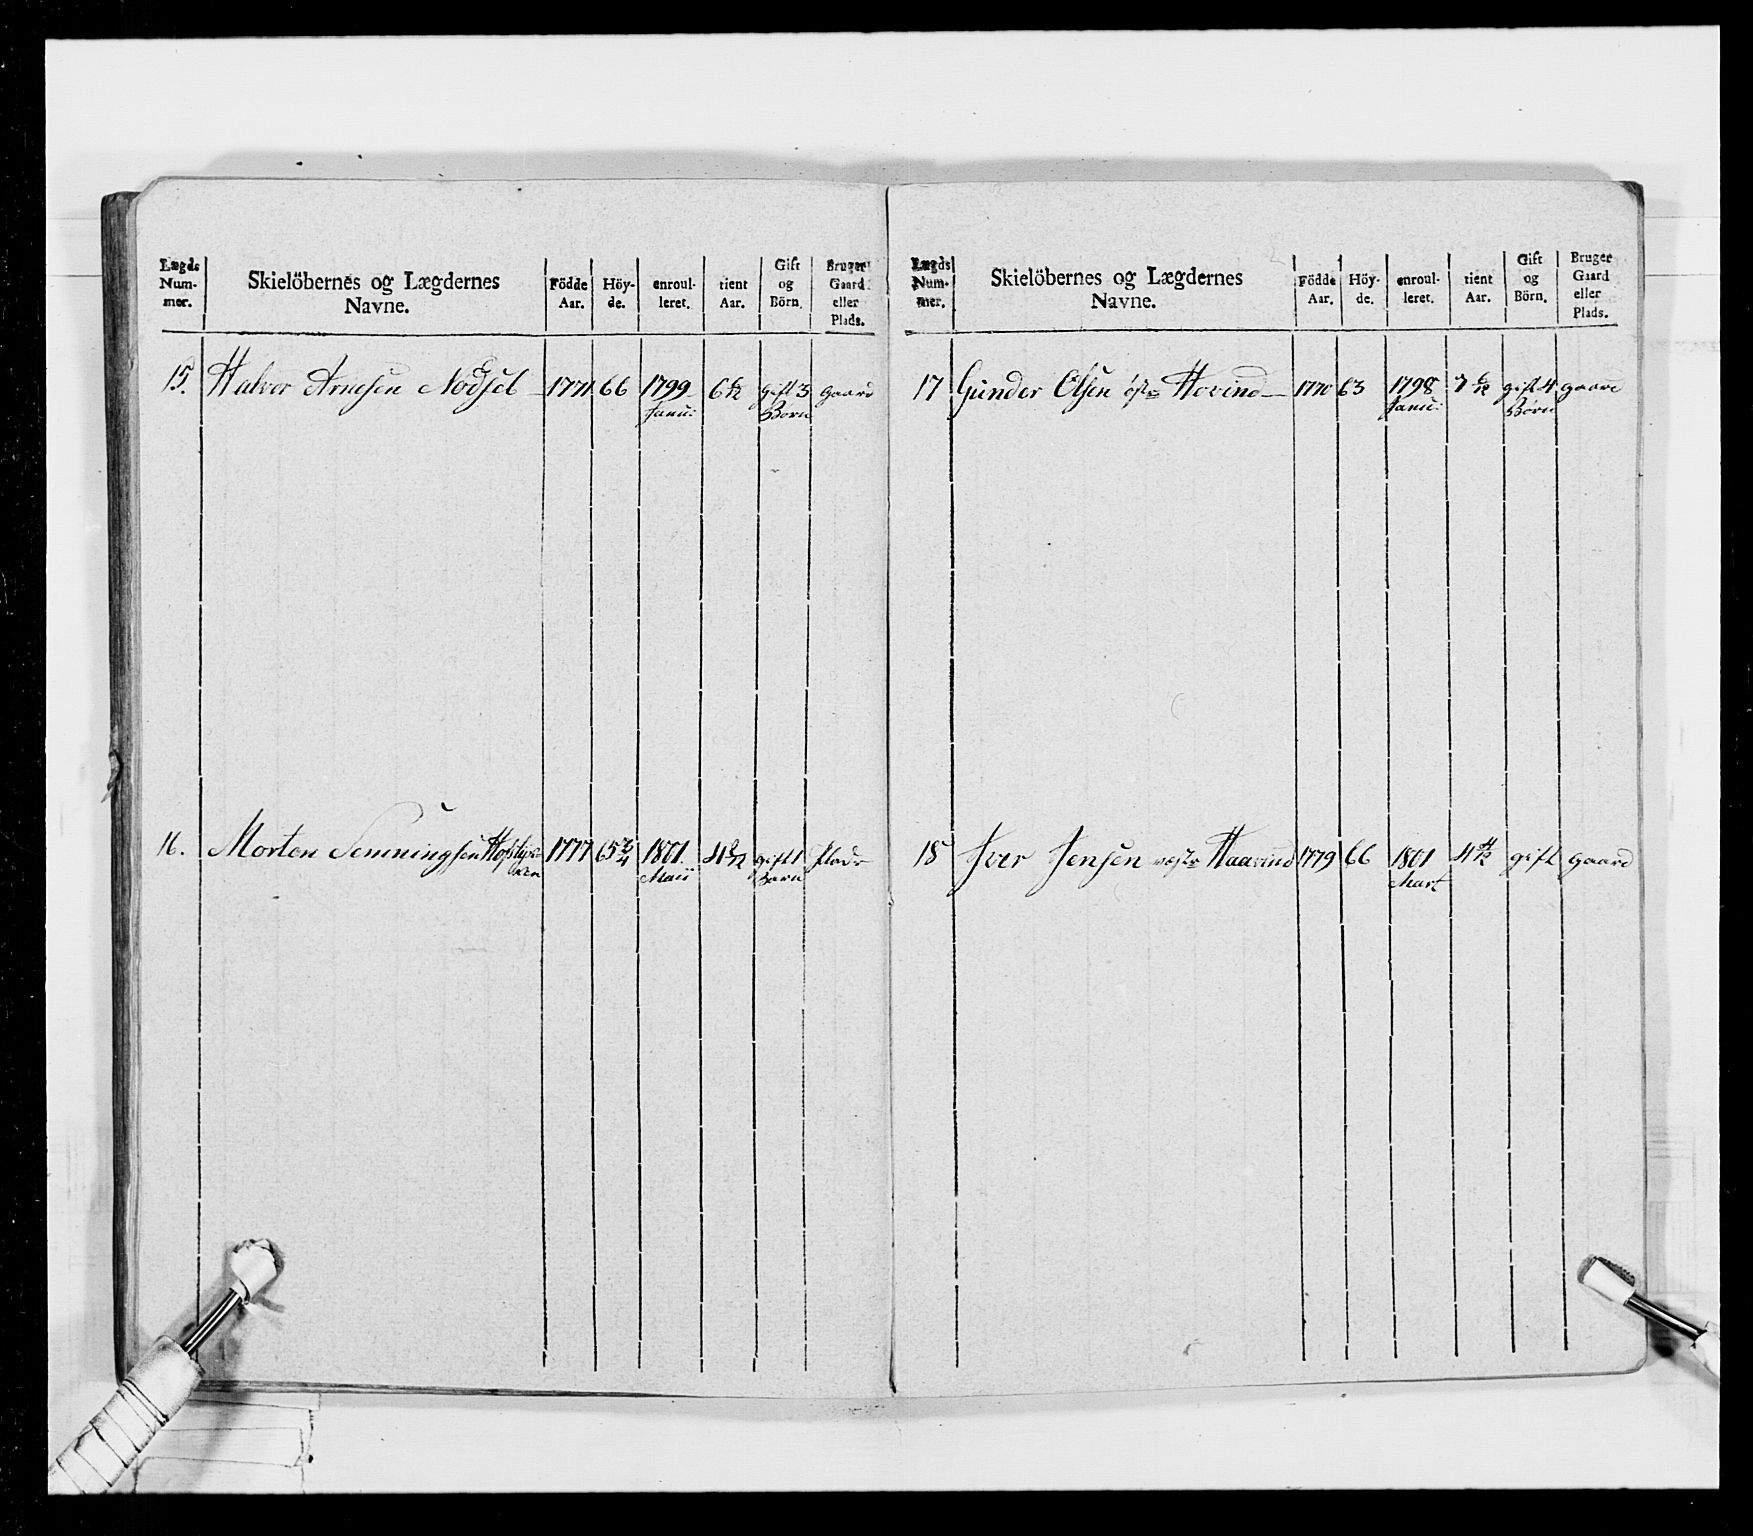 Lægds Num- mer. Skielöbernes og Lægdernes Navne. Födde Aar. Höy- de. enroul- leret. tient Aar. Gift og Börn. Bruger Gaard eller Plads.
15. Halvor Arnesen Nodset 1771 66 1799 6 6/12 gift 3 gaard
Janu: Börn
16. Morten Semmingsen 1777 65 3/4 1801. 4 2/12 gift 1 Plads
Maii Barn
Lægds Num- mer. Skielöbernes og Lægdernes Navne. Födde Aar. Höy- de. enroul- leret. tient Aar. Gift og Börn. Bruger Gaard eller Plads.
17 Gunder Olsen östr Hovind 1770 63 1798 7 6/12 gift 4 gaard
Janu: Börn
18 Iver Jensen vestr 1779 66 1801 4 4/12 gift gaard
Mart